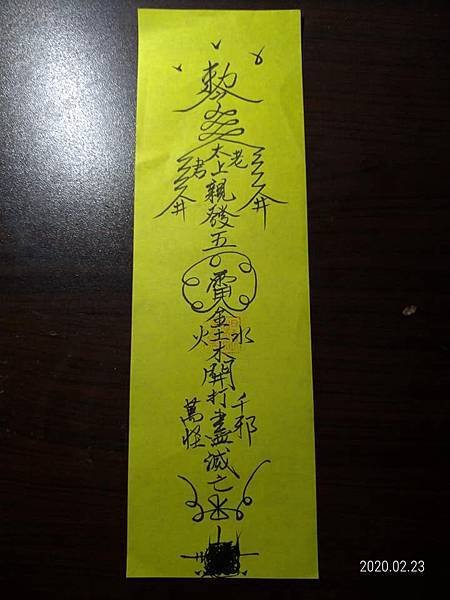 勅
太上
老
君
井
井
親發五
雷
金土木
水
火
開打
千邪
萬怪
盡滅亡
2020.02.23